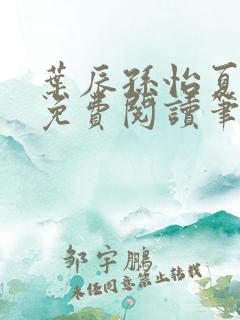 葉辰孫怡夏
免費閱讀筆
邹宇鹏
未经同意禁止转载